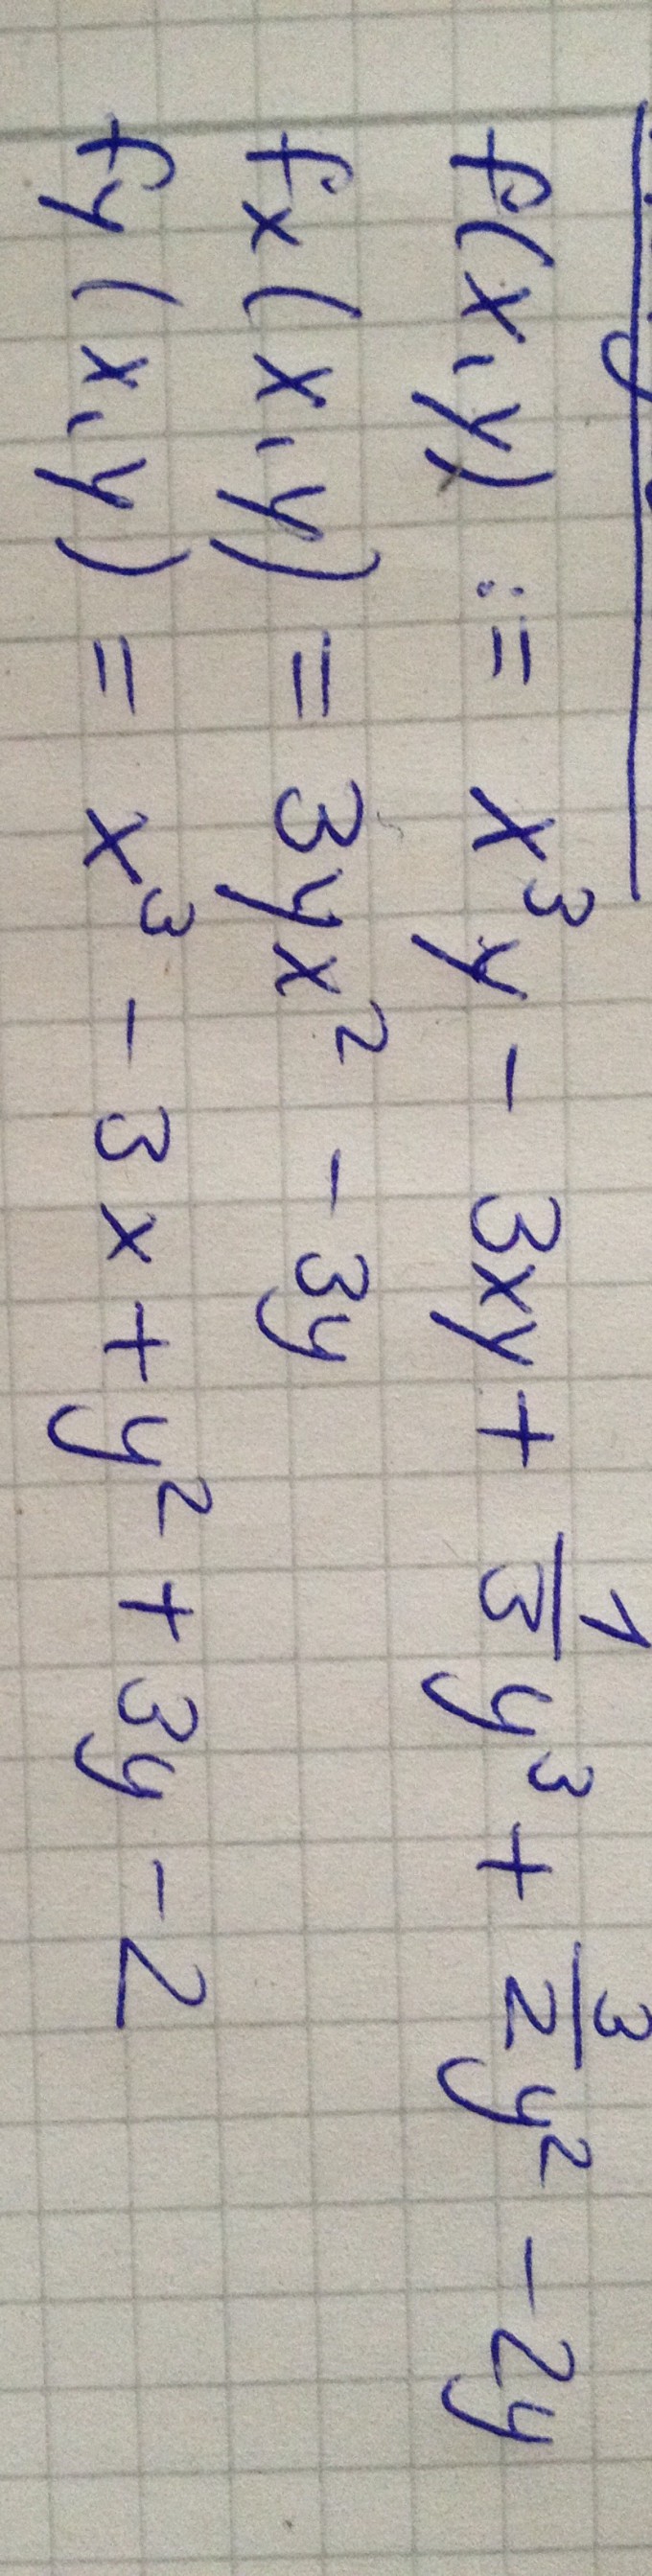 f(x,y) := x³y - 3xy + 1/3 y³ + 3/2 y² - 2y
fx(x,y) = 3yx² - 3y
fy(x,y) = x³ - 3x + y² + 3y - 2